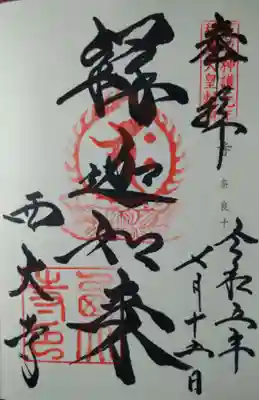 奉拝
令和五年
七月十五日
釋迦如来
西大寺